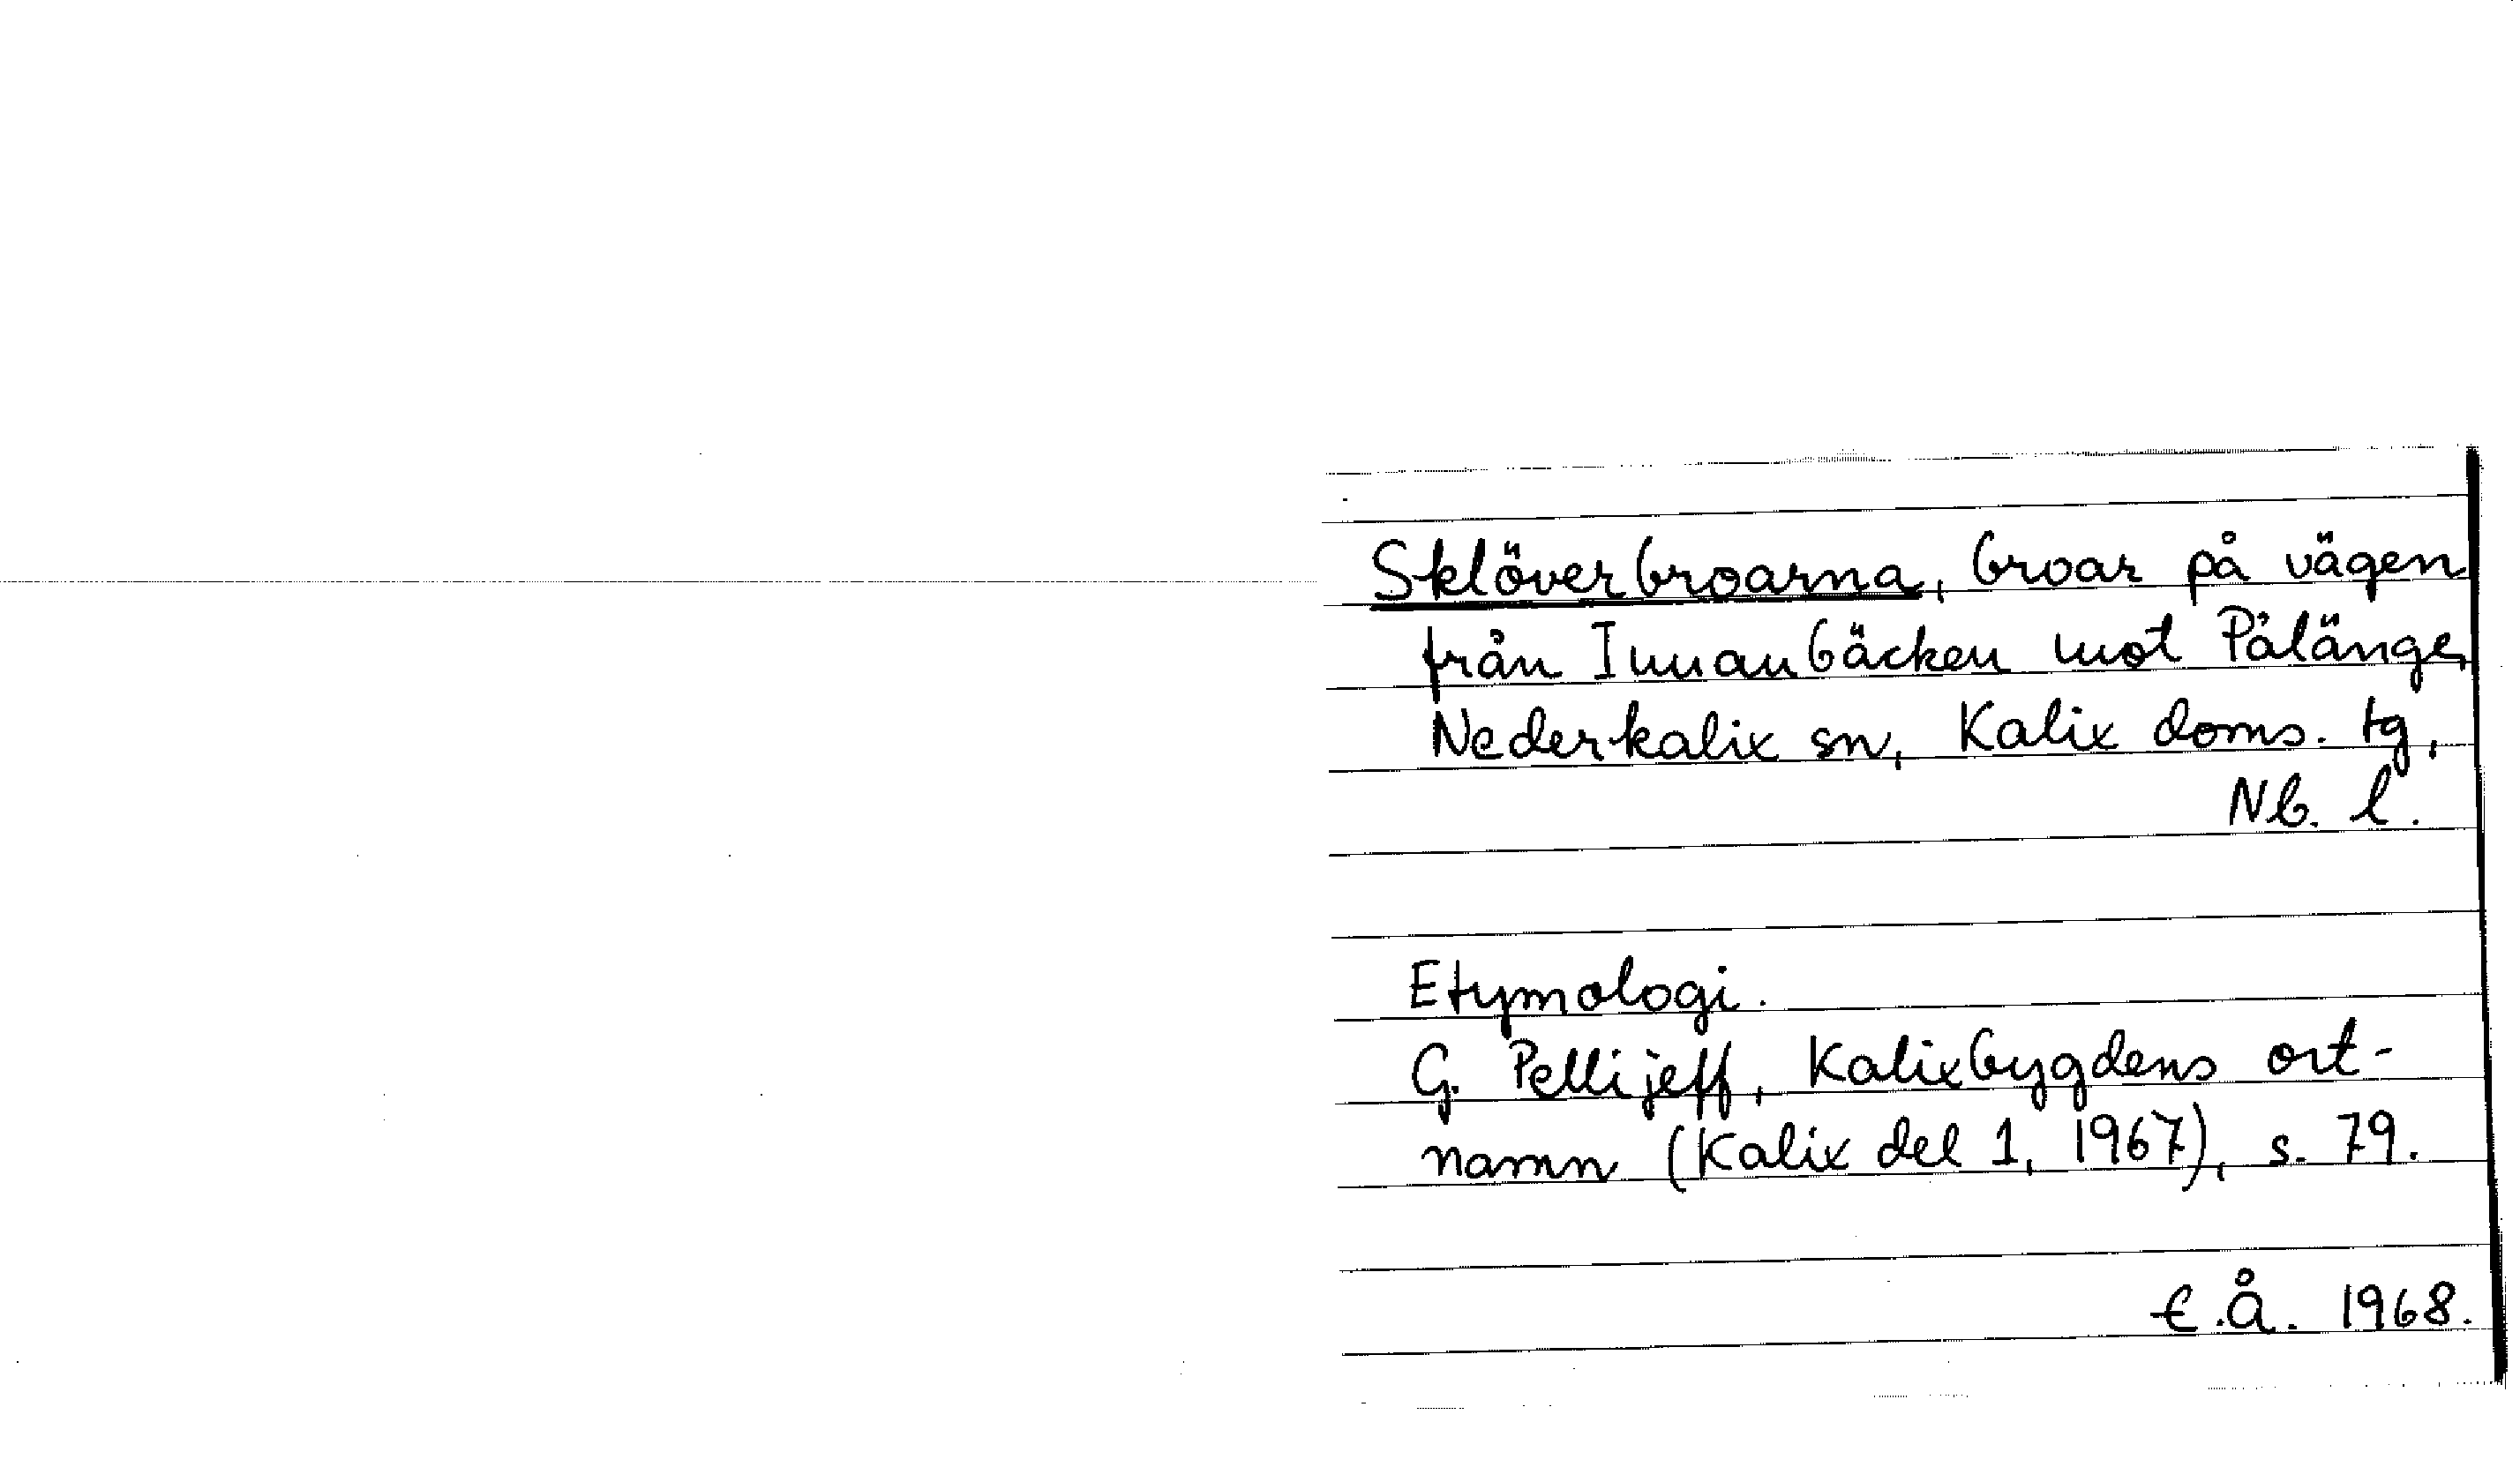 Sklöverbroarna, broar på vägen
från Innanbäcken mot Pålänge,
Nederkalix sn, Kalix doms. tg,
Nb. l.
Etymologi.
G. Pellijeff, Kalixbygdens ort-
namn (Kalix del 1, 1967), s. 79.
E.Å. 1968.